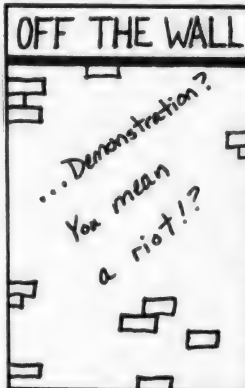 OFF THE WALL
...Demonstration?
You mean
a riot!?